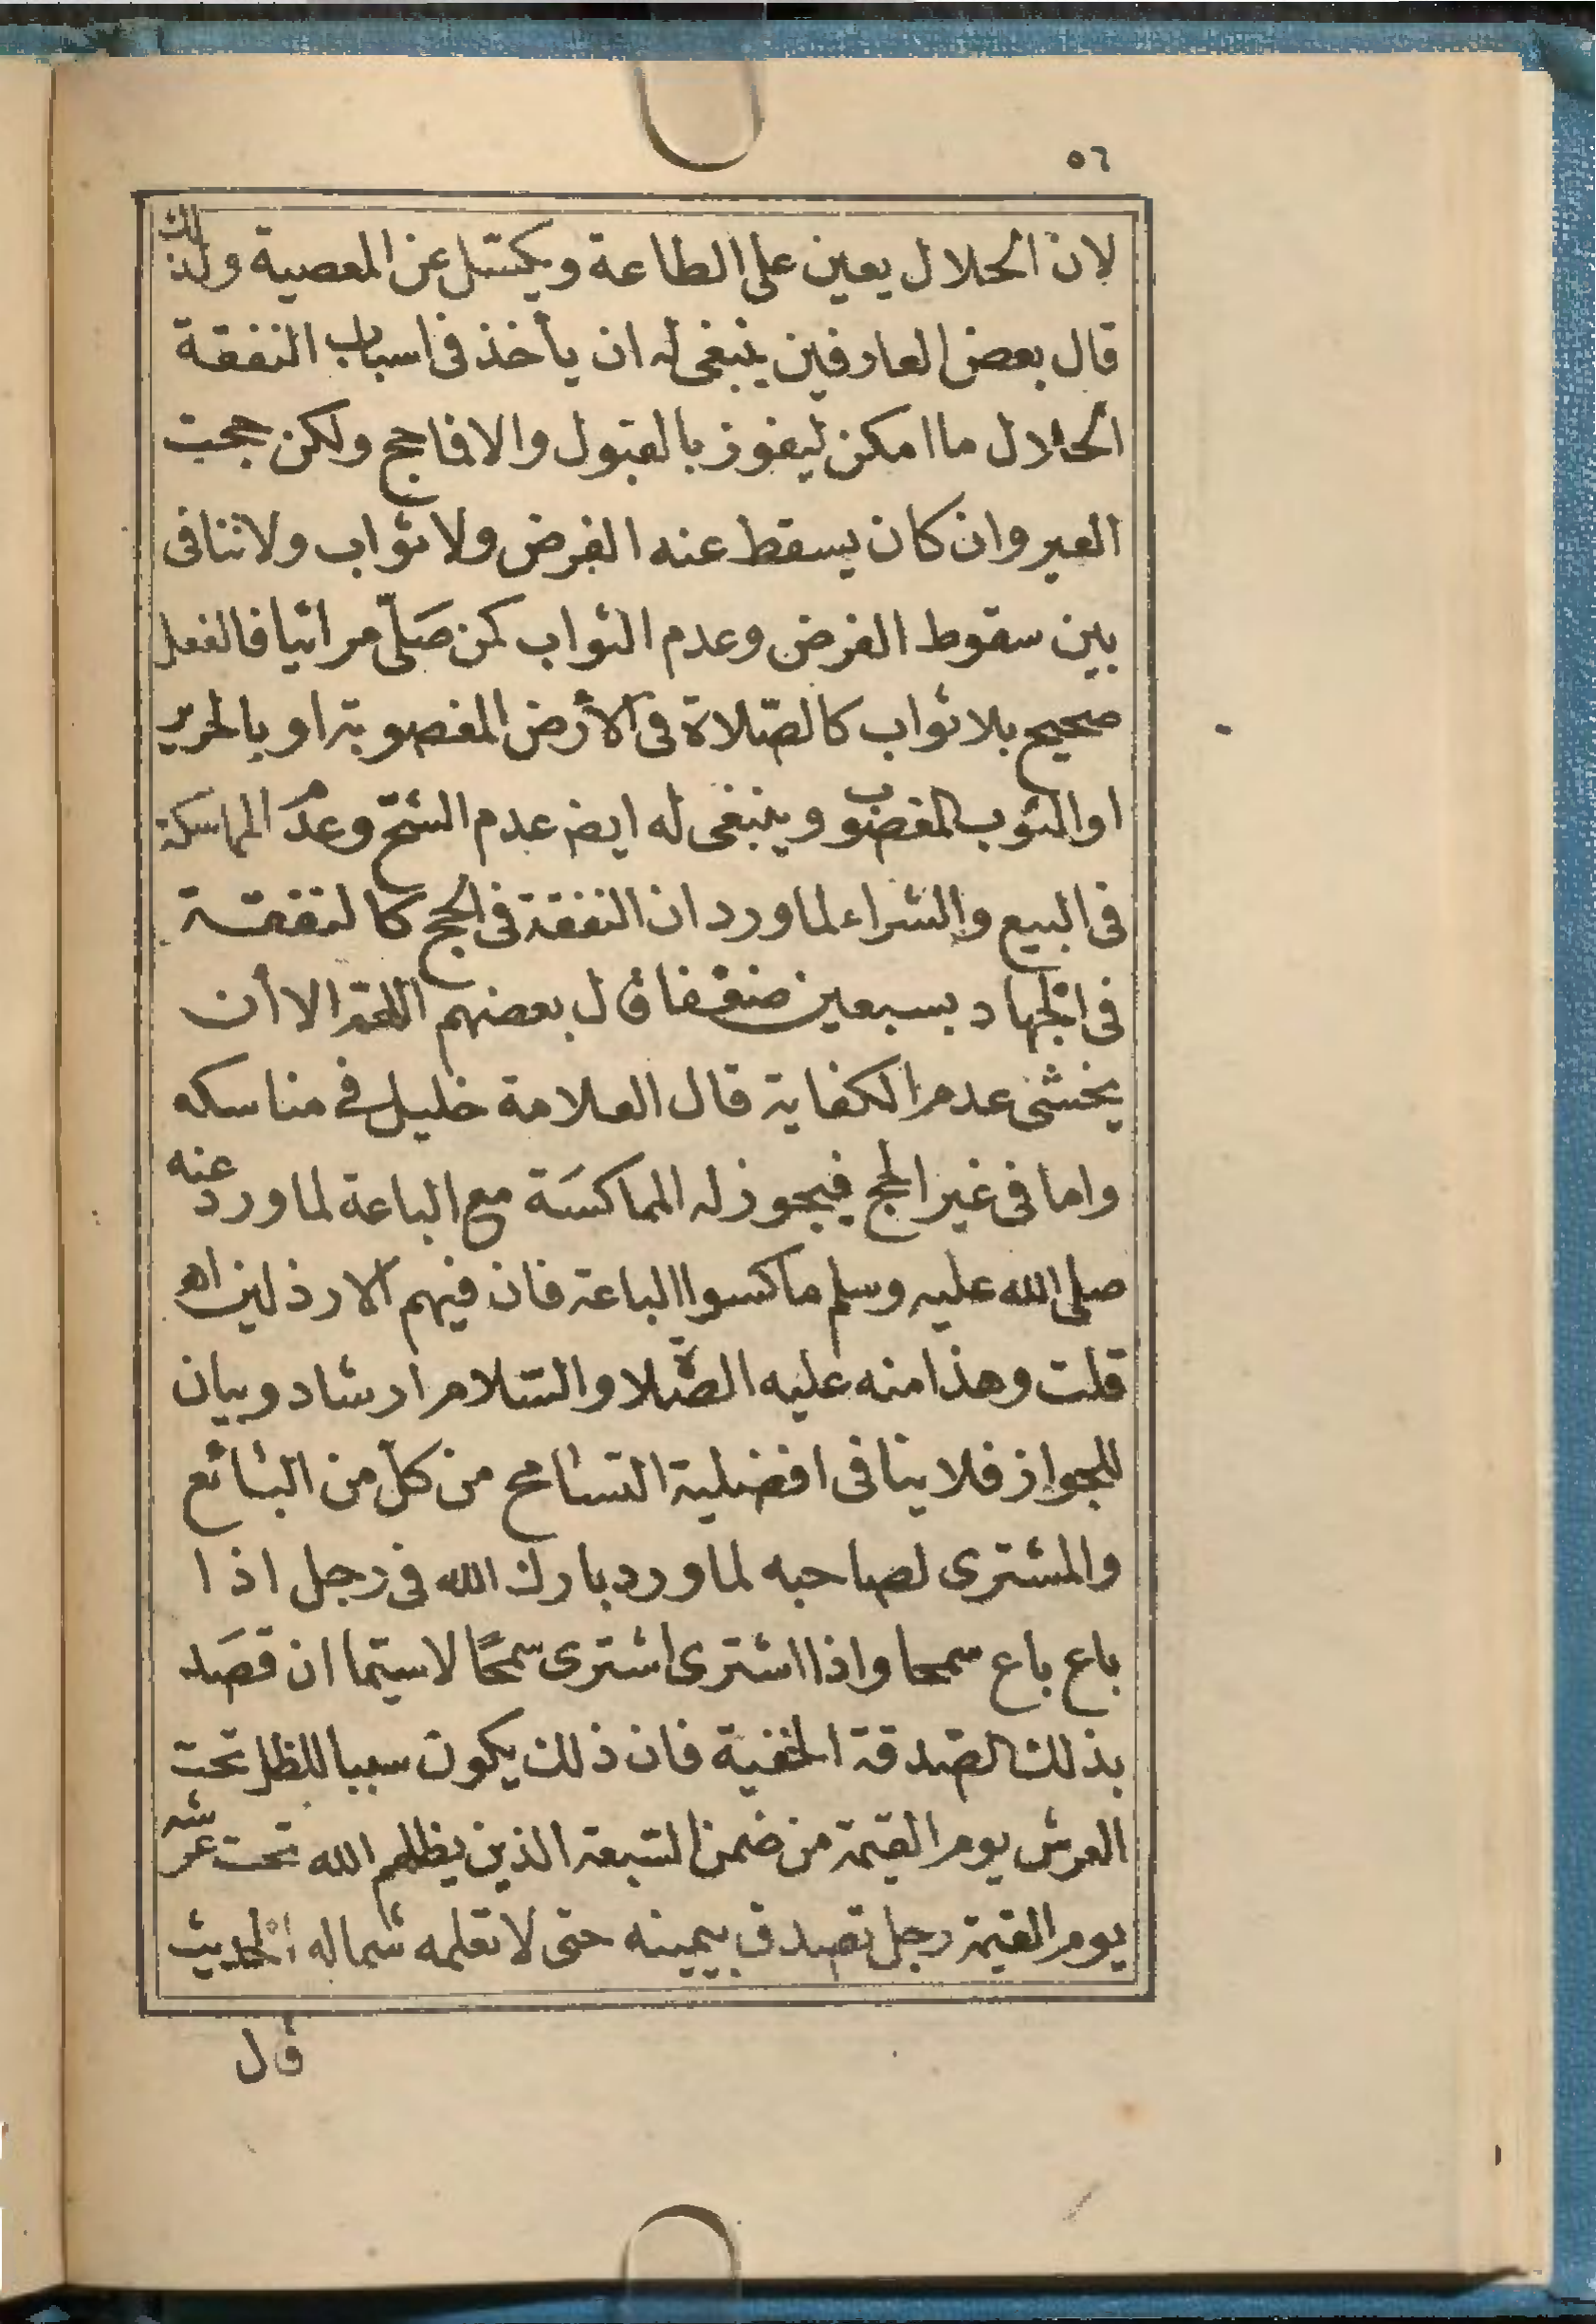 ٥٦
لان الحلال يعين على الطاعة ويكسل عن المعصية ولذلك
قال بعض العارفين ينبغى له ان يأخذ فى اسباب النفقة
الحلال ما امكن ليفوز بالقبول والا فما حج ولكن حجت
العير وان كان يسقط عنه الفرض ولا ثواب ولا تنافى
بين سقوط الفرض وعدم الثواب كمن صَلّى مرائيا فالفعل
صحيح بلا ثواب كالصّلاة فى الأرض المغصوبة او بالحرير
او الثوب المغصوب وينبغى له ايضا عدم الشحّ وعدم المماسكة
فى البيع والشراء لما ورد ان النفقة فى الحج كالنفقة
فى الجهاد بسبعين ضعفا قال بعضهم اللهمّ الا أن
يخشى عدم الكفاية قال العلامة خليل فى مناسكه
واما فى غير الحج فيجوز له المماكسَة مع الباعة لما ورد عنه
صلى الله عليه وسلم ماكسوا الباعة فان فيهم الارذلين اھ
قلت وهذا منه عليه الصّلاة والسّلام ارشاد وبيان
للجواز فلا ينافى افضلية التسامح من كلّ من البائع
والمشترى لصاحبه لما ورد بارك الله فى رجل اذا
باع باع سمحا واذا اشترى اشترى سمحًا لا سيّما ان قصَد
بذلك الصّدقة الخفية فان ذلك يكون سببا للظل تحت
العرش يوم القيمة من ضمن السّبعة الذين يظلهم الله تحت عرشه
يوم القيمة رجل تصدق بيمينه حتى لا تعلمه شماله الحديث
قال